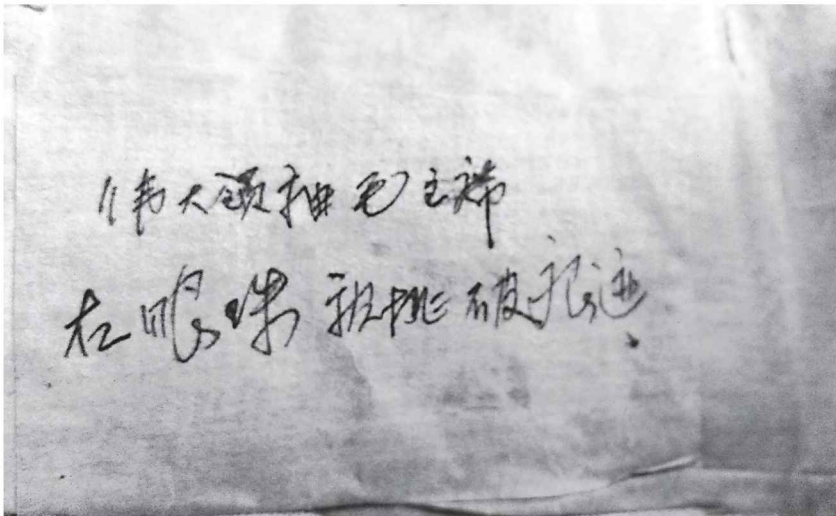 伟大领袖毛主席
左眼珠被挑破痕迹.